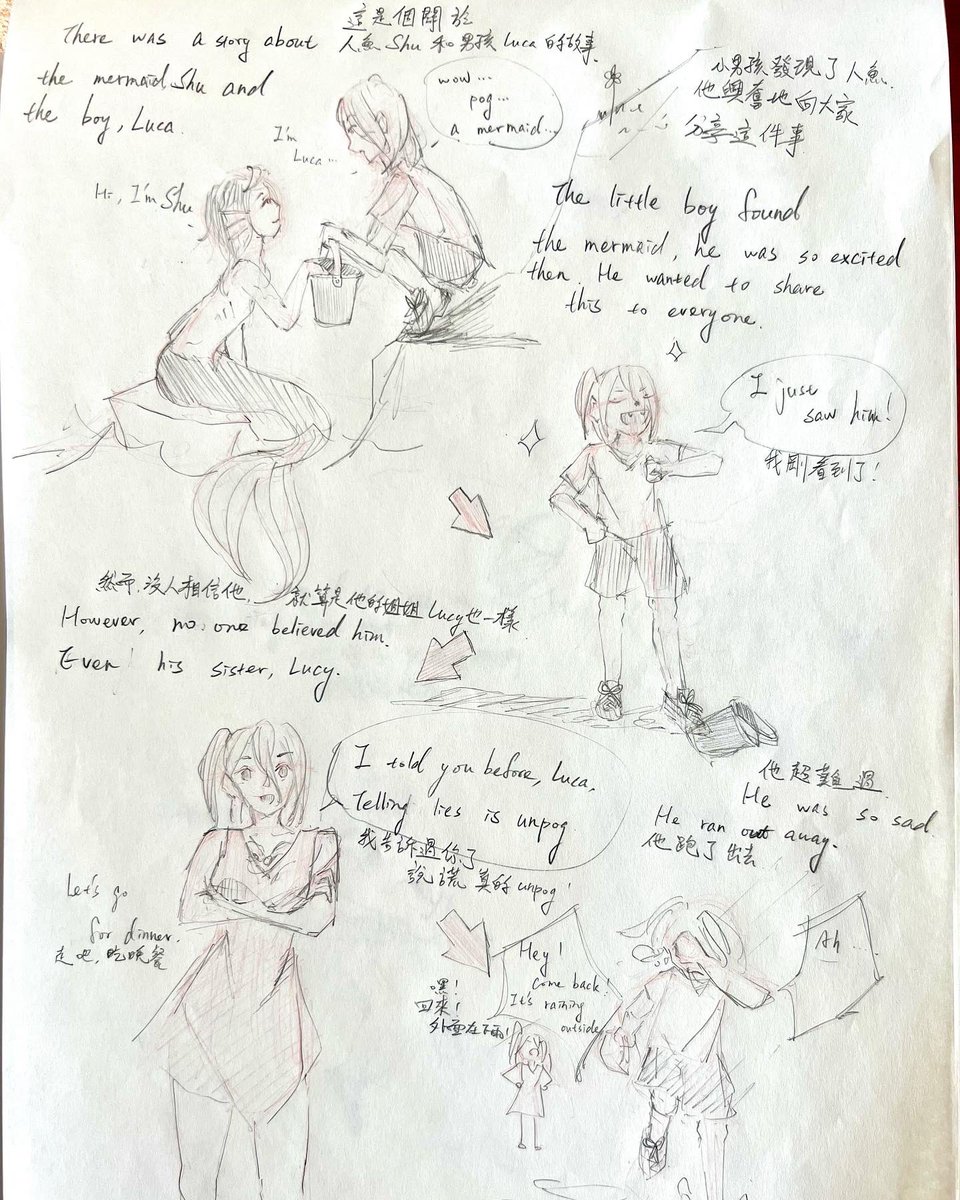 這是個關於
人魚 Shu 和男孩 Luca 的故事.
There was a story about
the mermaid Shu and
the boy, Luca.
wow...
pog...
a mermaid...
I'm
Luca...
Hi, I'm Shu
小男孩發現了人魚.
他興奮地向大家
分享這件事
The little boy found
the mermaid, he was so excited
then. He wanted to share
this to everyone.
I just
saw him!
我剛看到了!
然而,沒人相信他, 就算是他的姐姐Lucy也一樣
However, no one believed him.
Even his sister, Lucy.
I told you before, Luca,
Telling lies is unpog.
我告訴過你了
說謊真的unpog!
Let's go
for dinner.
走吧,吃晚餐
他超難過.
He was so sad
He ran away.
他跑了出去
Hey!
Come back!
It's raining
outside
嘿!
回來!
外面在下雨!
Ah